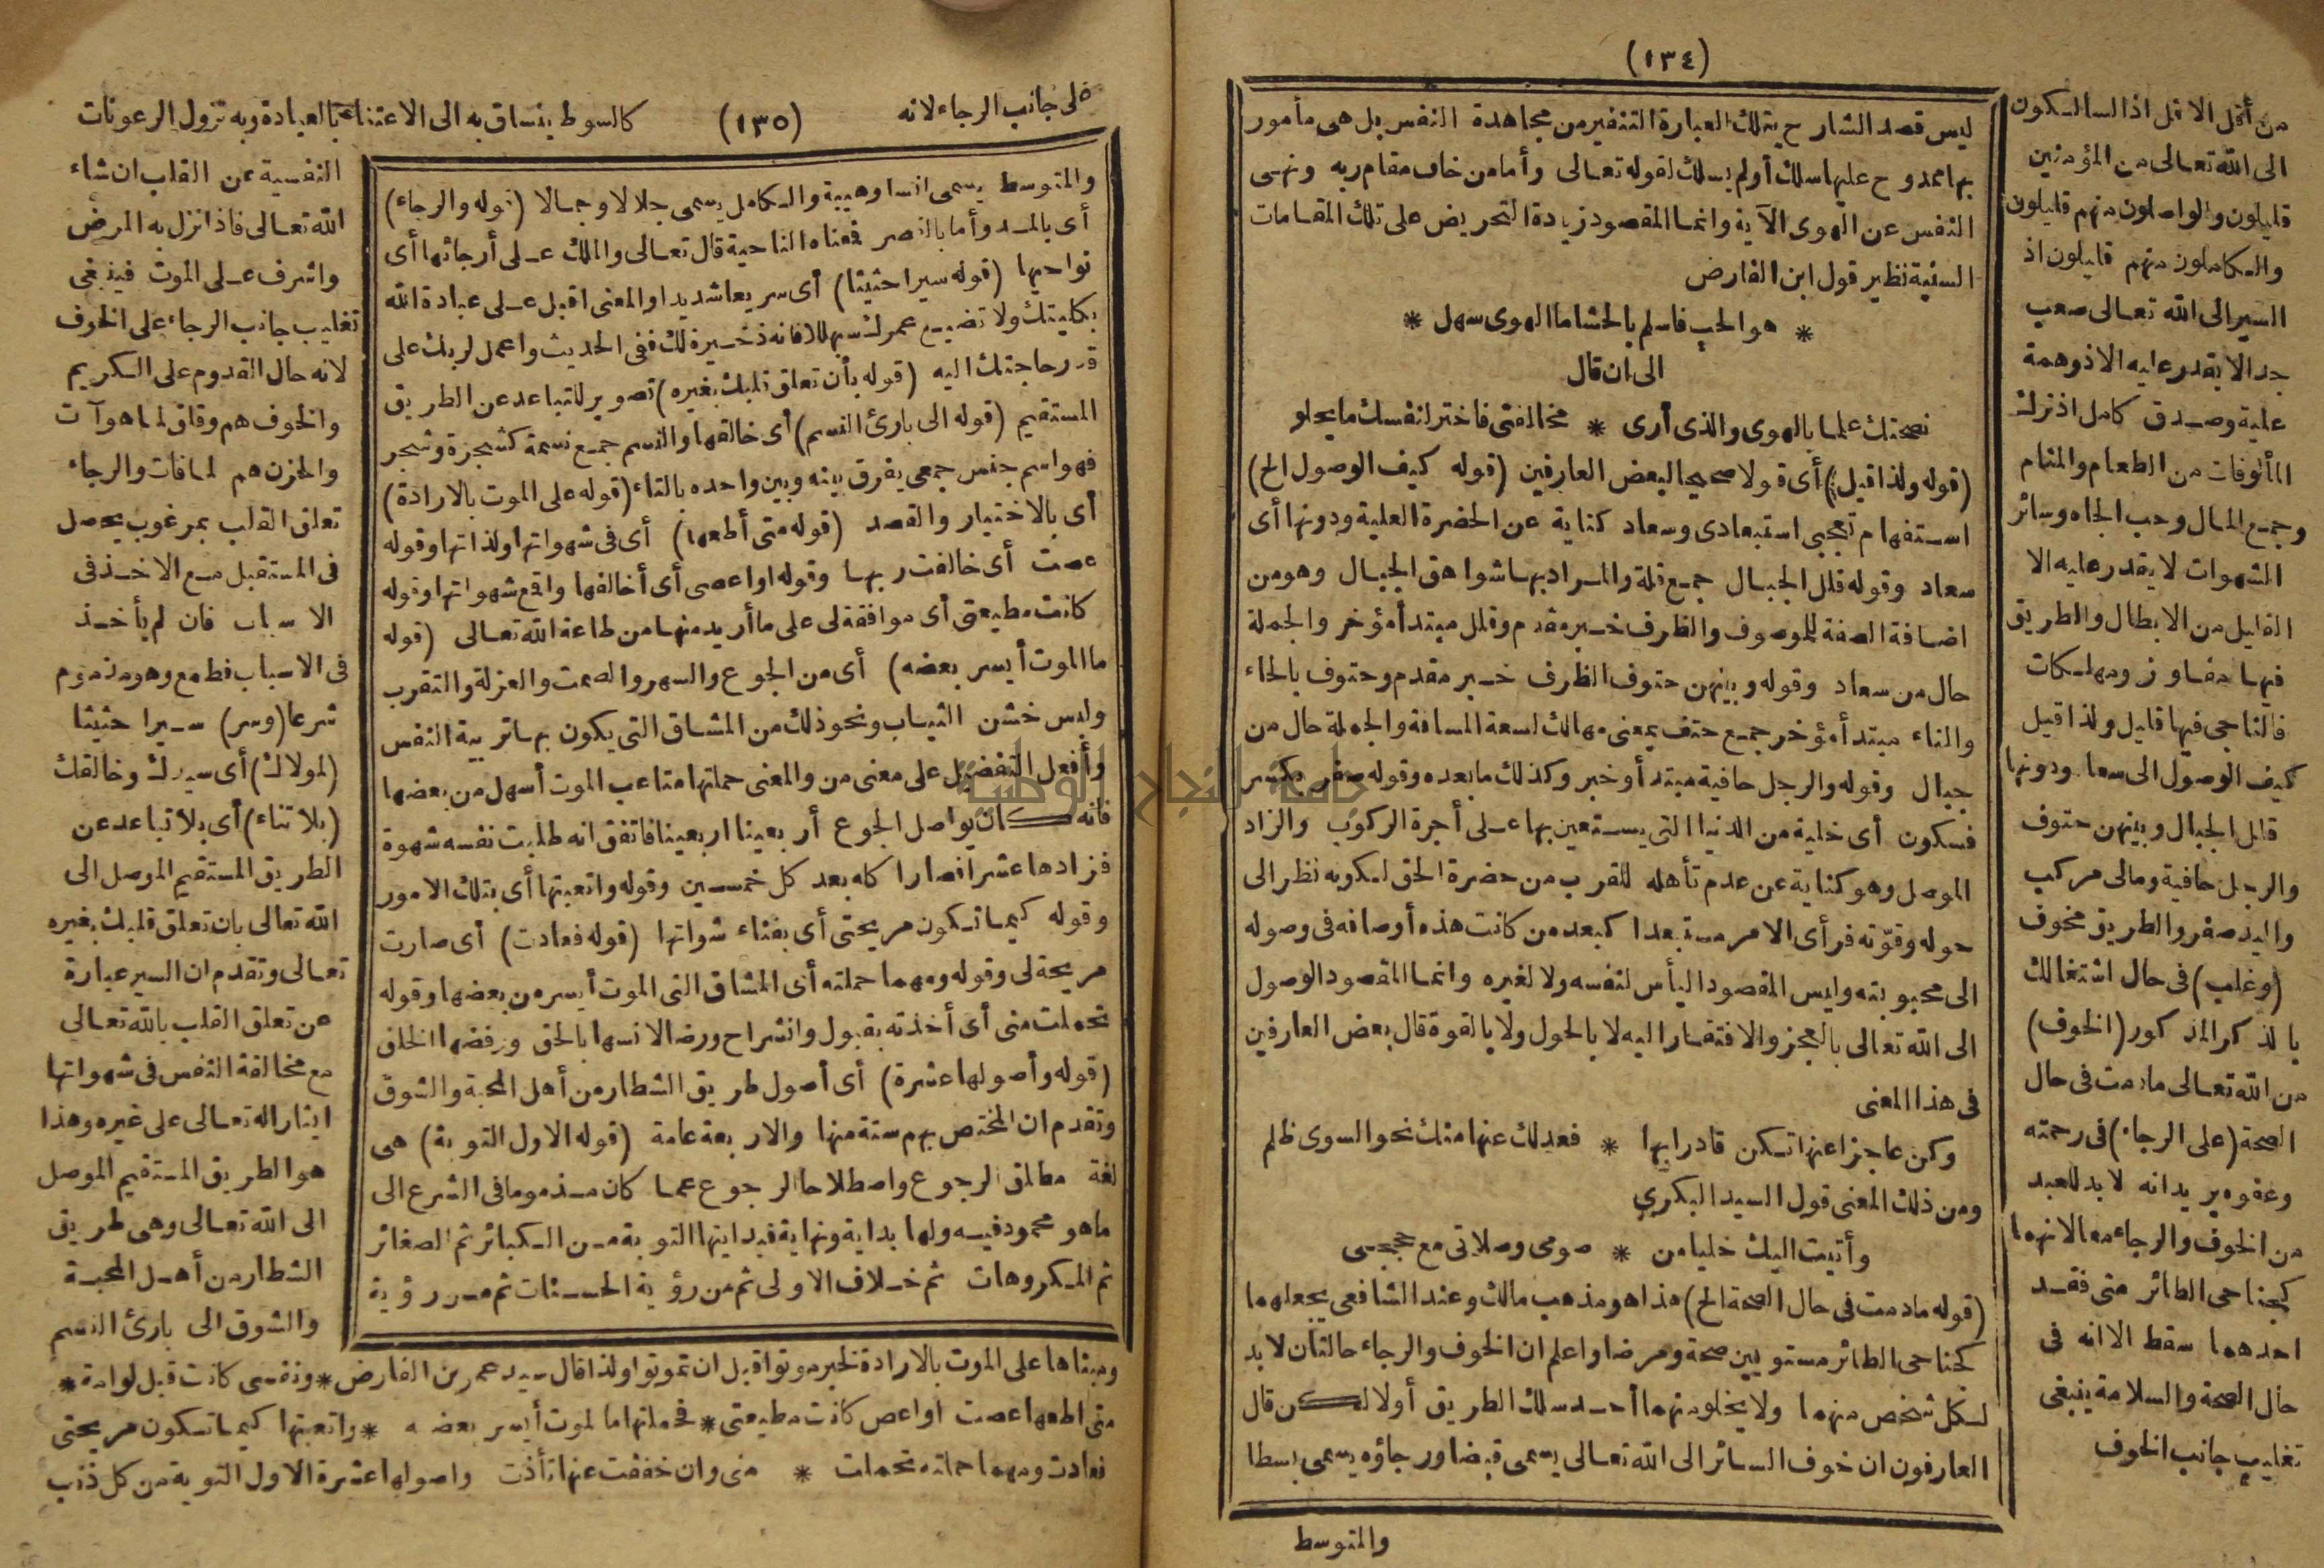 (١٣٤)
ليس قصد الشارح بتلك العبارة التنفير من مجاهدة النفس بل هى مأمور
بها ممدوح عليها سلك أولم يسلك لقوله تعالى وأما من خاف مقام ربه ونهى
النفس عن الهوى الآية وانما المقصود زيادة التحريض على تلك المقامات
السنية نظير قول ابن الفارض
* هو الحب فاسلم بالحشا ما الهوى سهل *
الى ان قال
نصحتك علما بالهوى والذى أرى * مخالفتى فاختر لنفسك ما يحلو
(قوله ولذا قيل) أى قولا صحيحا لبعض العارفين (قوله كيف الوصول الخ)
استفهام تعجبى استبعادى وسعاد كناية عن الحضرة العلية ودونها أى
سعاد وقوله قلل الجبال جمع قلة والمراد بها شواهق الجبال وهو من
اضافة الصفة للموصوف والظرف خبر مقدم وقلل مبتدأ مؤخر والجملة
حال من سعاد وقوله وبينهن حتوف الظرف خبر مقدم وحتوف بالحاء
والتاء مبتدأ مؤخر جمع حتف بمعنى مهالك لسعة المسافة والجملة حال من
جبال وقوله والرجل حافية مبتدأ وخبر وكذلك ما بعده وقوله صفر بكسر
فسكون أى خلية من الدنيا التى يستعين بها على أجرة الركوب والزاد
الموصل وهو كناية عن عدم تأهله للقرب من حضرة الحق لكونه نظر الى
حوله وقوّته فرأى الامر مستبعدا كبعد من كانت هذه أوصافه فى وصوله
الى محبوبته وليس المقصود اليأس لنفسه ولا لغيره وانما المقصود الوصول
الى الله تعالى بالعجز والافتقار اليه لا بالحول ولا بالقوة قال بعض العارفين
فى هذا المعنى
وكن عاجزا عنها تكن قادرا بها * فعدلك عنها منك نحو السوى ظلم
ومن ذلك المعنى قول السيد البكرى
وأتيت اليك خليا من * صومى وصلاتى مع حججى
(قوله مادمت فى حال الصحة الخ) هذا هو مذهب مالك وعند الشافعى يجعلهما
كجناحى الطائر مستويين صحة ومرضا واعلم ان الخوف والرجاء حالتان لا بد
لكل شخص منهما ولا يخلو منهما أحد سلك الطريق أولا لكن قال
العارفون ان خوف السائر الى الله تعالى يسمى قبضا ورجاؤه يسمى بسطا
والمتوسط
من أقل الاقل اذ السالكون
الى الله تعالى من المؤمنين
قليلون والواصلون منهم قليلون
والكاملون منهم قليلون اذ
السير الى الله تعالى صعب
جدا لا يقدر عليه الا ذو همة
علية وصدق كامل اذ ترك
المألوفات من الطعام والمنام
وجمع المال وحب الجاه وسائر
الشهوات لا يقدر عليه الا
القليل من الابطال والطريق
فيها مفاوز ومهلكات
فالناجى فيها قليل ولذا قيل
كيف الوصول الى سعاد ودونها
قلل الجبال وبينهن حتوف
والرجل حافية ومالى مركب
واليد صفر والطريق مخوف
(وغلب) فى حال اشتغالك
بالذكر المذكور (الخوف)
من الله تعالى مادمت فى حال
الصحة (على الرجاء) فى رحمته
وعفوه يريد انه لا بد للعبد
من الخوف والرجاء معا لانهما
كجناحى الطائر متى فقد
احدهما سقط الا انه فى
حال الصحة والسلامة ينبغى
تغليب جانب الخوف
على جانب الرجاء لانه (١٣٥) كالسوط ينساق به الى الاعتناء بالعبادة وبه تزول الرعونات
والمتوسط يسمى انسا وهيبة والكامل يسمى جلالا وجمالا (قوله والرجاء)
أى بالمد وأما بالقصر فمعناه الناحية قال تعالى والملك على أرجائها أى
نواحيها (قوله سيرا حثيثا) أى سريعا شديدا والمعنى اقبل على عبادة الله
بكليتك ولا تضييع عمرك سبهللا فانه ذخيرة لك ففى الحديث واعمل لربك على
قدر حاجتك اليه (قوله بأن تعلق قلبك بغيره) تصوير للتباعد عن الطريق
المستقيم (قوله الى بارئ النسم) أى خالقها والنسم جمع نسمة كشجرة وشجر
فهو اسم جنس جمعى يفرق بينه وبين واحده بالتاء (قوله على الموت بالارادة)
أى بالاختيار والقصد (قوله متى أطعها) أى فى شهواتها ولذاتها وقوله
عصت أى خالفت ربها وقوله او اعصى أى أخالفها واقع شهواتها وقوله
كانت مطيعتى أى موافقة لى على ما أريد منها من طاعة الله تعالى (قوله
ما الموت أيسر بعضه) أى من الجوع والسهر والصمت والعزلة والتقرب
ولبس خشن الثياب ونحو ذلك من المشاق التى يكون بها تربية النفس
وأفعل التفضيل على معنى من والمعنى حملتها متاعب الموت أسهل من بعضها
فانه كان يواصل الجوع أربعينا اربعينا فاتفق انه طلبت نفسه شهوة
فزادها عشرا فصار اكله بعد كل خمسين وقوله واتعبتها أى بتلك الامور
وقوله كيما تكون مريحتى أى بفناء شهواتها (قوله فعادت) أى صارت
مريحة لى وقوله ومهما حملته أى المشاق التى الموت أيسر من بعضها وقوله
تحملت منى أى أخذته بقبول وانشراح ورضا لانسها بالحق ورفضها الخلق
(قوله وأصولها عشرة) أى أصول طريق الشطار من أهل المحبة والشوق
وتقدم ان المختص بهم ستة منها والاربعة عامة (قوله الاول التوبة) هى
لغة مطلق الرجوع واصطلاحا الرجوع عما كان مذموما فى الشرع الى
ما هو محمود فيه ولها بداية ونهاية فبدايتها التوبة من الكبائر ثم الصغائر
ثم المكروهات ثم خلاف الاولى ثم من رؤية الحسنات ثم من رؤية
النفسية عن القلب ان شاء
الله تعالى فاذا نزل به المرض
واشرف على الموت فينبغى
تغليب جانب الرجاء على الخوف
لانه حال القدوم على الكريم
والخوف هم وقلق لما هو آت
والحزن هم لما فات والرجاء
تعلق القلب بمرغوب يحصل
فى المستقبل مع الاخذ فى
الاسباب فان لم يأخذ
فى الاسباب فطمع وهو مذموم
شرعا (وسر) سيرا حثيثا
(لمولاك) أى سيدك وخالقك
(بلا تناء) أى بلا تباعد عن
الطريق المستقيم الموصل الى
الله تعالى بان تعلق قلبك بغيره
تعالى وتقدم ان السير عبارة
عن تعلق القلب بالله تعالى
مع مخالفة النفس فى شهواتها
ايثارا له تعالى على غيره وهذا
هو الطريق المستقيم الموصل
الى الله تعالى وهى طريق
الشطار من أهل المحبة
والشوق الى بارئ النسم
ومبناها على الموت بالارادة لخبر موتوا قبل ان تموتوا ولذا قال سيد عمر بن الفارض * ونفسى كانت قبل لوامة *
متى اطعها عصت أو اعص كانت مطيعتى * فحملتها ما الموت أيسر بعضه * واتعبتها كيما تكون مريحتى
فعادت ومهما حملته تحملت * منى وان خففت عنها تأذت واصولها عشرة الاول التوبة من كل ذنب
جامعة النجاح الوطنية